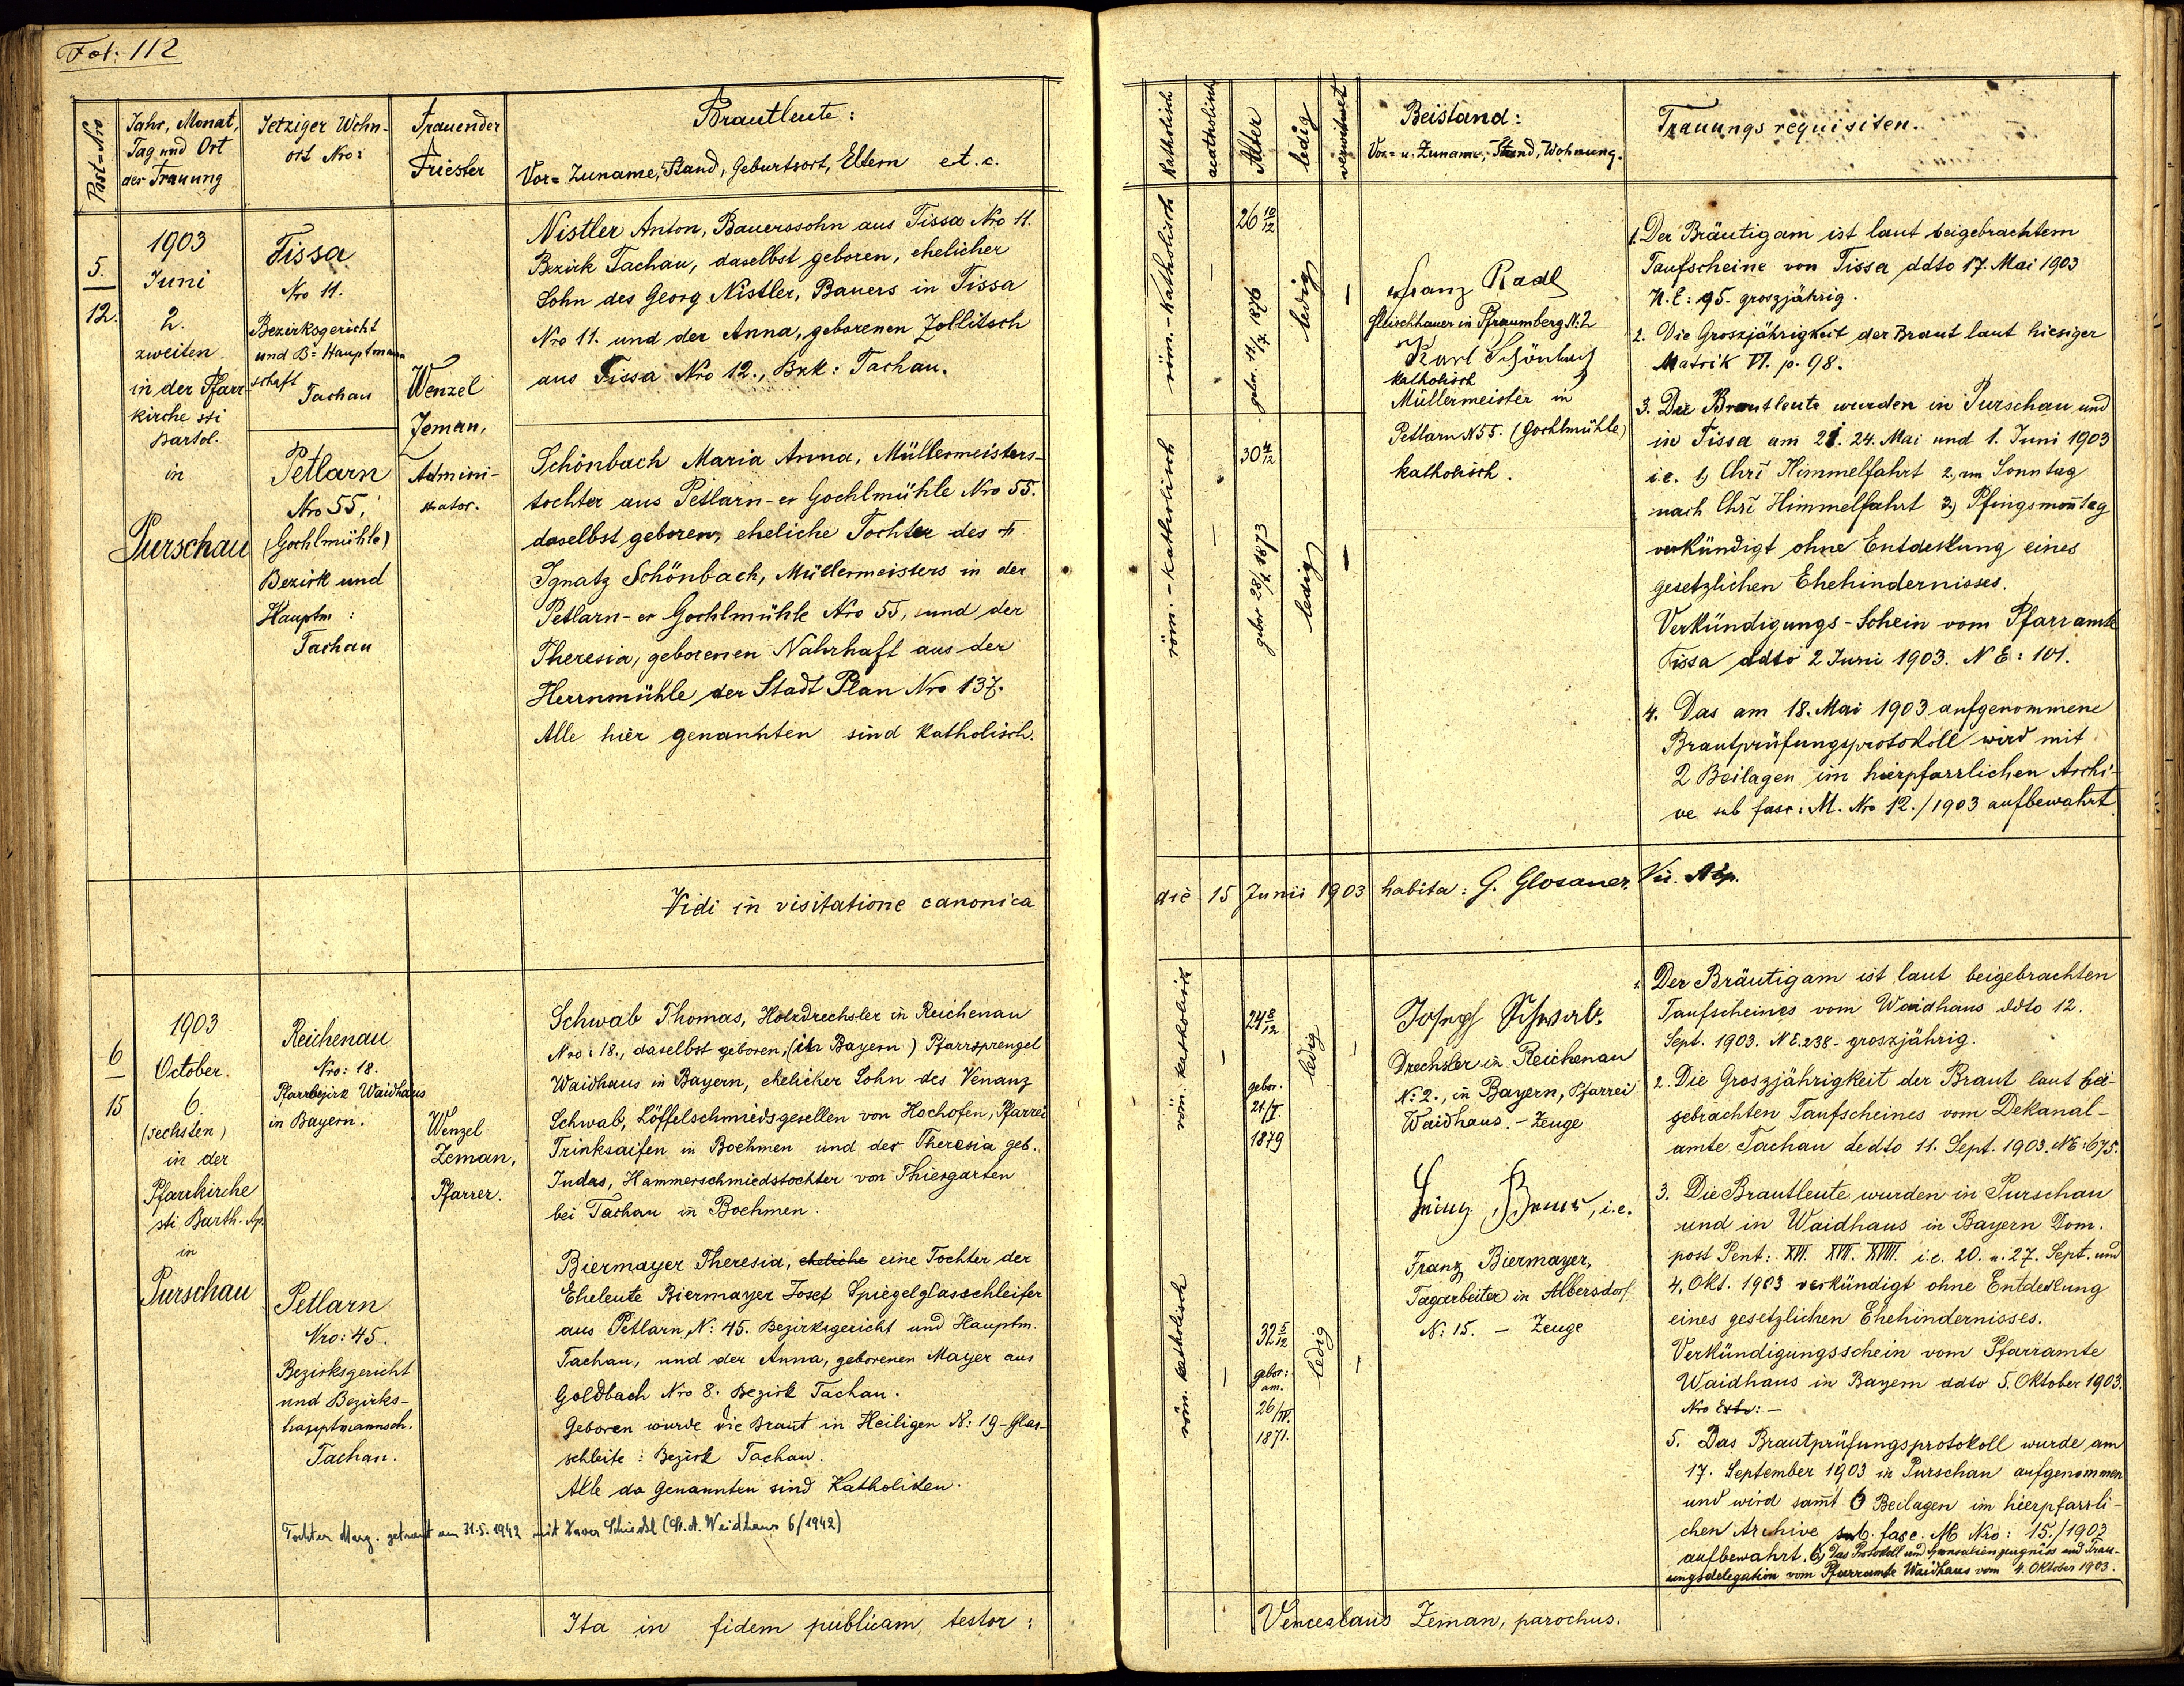 Fol: 112
Post=Nro
Jahr, Monat,
Tag und Ort
der Trauung
Jetziger Wohn-
ort Nro:
Trauender
Priester
Brautleute:
Vor= Zuname, Stand, Geburtsort, Eltern et. c.
5.
12.
1903
Juni
2.
zweiten
in der Pfarr-
kirche sti
Bartol.
in
Purschau
Tissa
Nro 11.
Bezirksgericht
und B= Hauptmann
schaft
Tachau
Petlarn
Nro 55,
(Gochlmühle)
Bezirk und
Hauptm:
Tachau
Wenzel
Zeman,
Admini-
strator.
Nistler Anton, Bauerssohn aus Tissa Nro 11.
Bezirk Tachau, daselbst geboren, ehelicher
Sohn des Georg Nistler, Bauers in Tissa
Nro 11. und der Anna, geborenen Zollitsch
aus Tissa Nro 12., Bzk: Tachau.
Schönbach Maria Anna, Müllermeisters-
tochter aus Petlarn-er Gochlmühle Nro 55.
daselbst geboren, eheliche Tochter des †
Ignatz Schönbach, Müllermeisters in der
Petlarn-er Gochlmühle Nro 55, und der
Theresia, geborenen Nahrhaft aus der
Herrnmühle der Stadt Plan Nro 137.
Alle hier genannten sind katholisch.
Vidi in visitatione canonica
6
15
1903
October.
6.
(sechsten)
in der
Pfarrkirche
sti Barth. Ap.
in
Purschau
Reichenau
Nro: 18.
Pfarrbezirk Waidhaus
in Bayern.
Petlarn
Nro: 45.
Bezirksgericht
und Bezirks-
hauptmannsch.
Tachau.
Wenzel
Zeman,
Pfarrer.
Schwab Thomas, Holzdrechsler in Reichenau
Nro: 18., daselbst geboren, (in Bayern) Pfarrsprengel
Waidhaus in Bayern, ehelicher Sohn des Venanz
Schwab, Löffelschmiedsgesellen von Hochofen, Pfarrei
Trinksaifen in Boehmen und der Theresia geb.
Judas, Hammerschmiedstochter von Thiergarten
bei Tachau in Boehmen.
Biermayer Theresia, eheliche eine Tochter der
Eheleute Biermayer Josef Spiegelglasschleifer
aus Petlarn, N: 45. Bezirksgericht und Hauptm.
Tachau, und der Anna, geborenen Mayer aus
Goldbach Nro 8. Bezirk Tachau.
Geboren wurde die Braut in Heiligen N: 19 - Glas-
schleife: Bezirk Tachau.
Alle da Genannten sind Katholiken.
Tochter Marg. getraut am 31.5.1942 mit Xaver Schiedl (St. A. Weidhaus 6/1942)
Ita in fidem publicam testor:
Katholisch
acatholisch
Alter
ledig
verwitwet
Beistand:
Vor= u. Zuname, Stand, Wohnung.
Trauungsrequisiten.
röm.-katholisch
—
26 10/12
gebor. 11/7. 1876
ledig
—
röm.-katholisch
—
30 4/12
gebor 28/7 1873
ledig
—
Franz Radl
Fleischhauer in Pfraumberg N: 2
Karl Schönbach
katholisch
Müllermeister in
Petlarn N 55. (Gochlmühle)
katholisch.
1. Der Bräutigam ist laut beigebrachtem
Taufscheine von Tissa ddto 17. Mai 1903
N. E: 95. groszjährig.
2. Die Groszjährigkeit der Braut laut hiesiger
Matrik VI. p. 98.
3. Die Brautleute wurden in Purschau und
in Tissa am 21. 24. Mai und 1. Juni 1903
i.e. 1, Chri Himmelfahrt 2, am Sonntag
nach Chri Himmelfahrt 3) Pfingsmontag
verkündigt ohne Entdeckung eines
gesetzlichen Ehehindernisses.
Verkündigungs-Schein vom Pfarramte
Tissa ddto 2 Juni 1903. N E: 101.
4. Das am 18. Mai 1903 aufgenommene
Brautprüfungsprotokoll wird mit
2 Beilagen im hierpfarrlichen Archi-
ve sub fasc: M. Nro 12./1903 aufbewahrt
die 15 Junii 1903 habita: G. Glosauer,
röm. katholisch
—
24 8/12
gebor.
21/I.
1879
ledig
—
röm. katholisch
—
32 5/12
gebor:
am.
26/IV.
1871.
ledig
—
Josef Schwab.
Drechsler in Reichenau
N: 2., in Bayern, Pfarrei
Waidhaus. - Zeuge
i.e.
Franz Biermayer,
Tagarbeiter in Albersdorf
N: 15. — Zeuge
1. Der Bräutigam ist laut beigebrachten
Taufscheines vom Waidhaus ddto 12.
Sept. 1903. N E. 238 - groszjährig.
2. Die Groszjährigkeit der Braut laut bei-
gebrachten Taufscheines vom Dekanal-
amte Tachau dedto 11. Sept. 1903. NE: 675.
3. Die Brautleute wurden in Purschau
und in Waidhaus in Bayern Dom.
post Pent: XVI. XVII. XVIII. i.e. 20. u. 27. Sept. und
4. Okt. 1903 verkündigt ohne Entdeckung
eines gesetzlichen Ehehindernisses.
Verkündigungsschein vom Pfarramte
Waidhaus in Bayern ddto 5. Oktober 1903.
Nro Exh: —
5. Das Brautprüfungsprotokoll wurde am
17. September 1903 in Purschau aufgenommen
und wird samt 6 Beilagen im hierpfarrli-
chen Archive sub. fasc. M Nro: 15./1903
aufbewahrt. 6, Das Protokoll und Sponsalienzeugniss und Trau-
ungsdelegation vom Pfarramte Waidhaus vom 4. Oktober 1903.
Venceslaus Zeman, parochus.